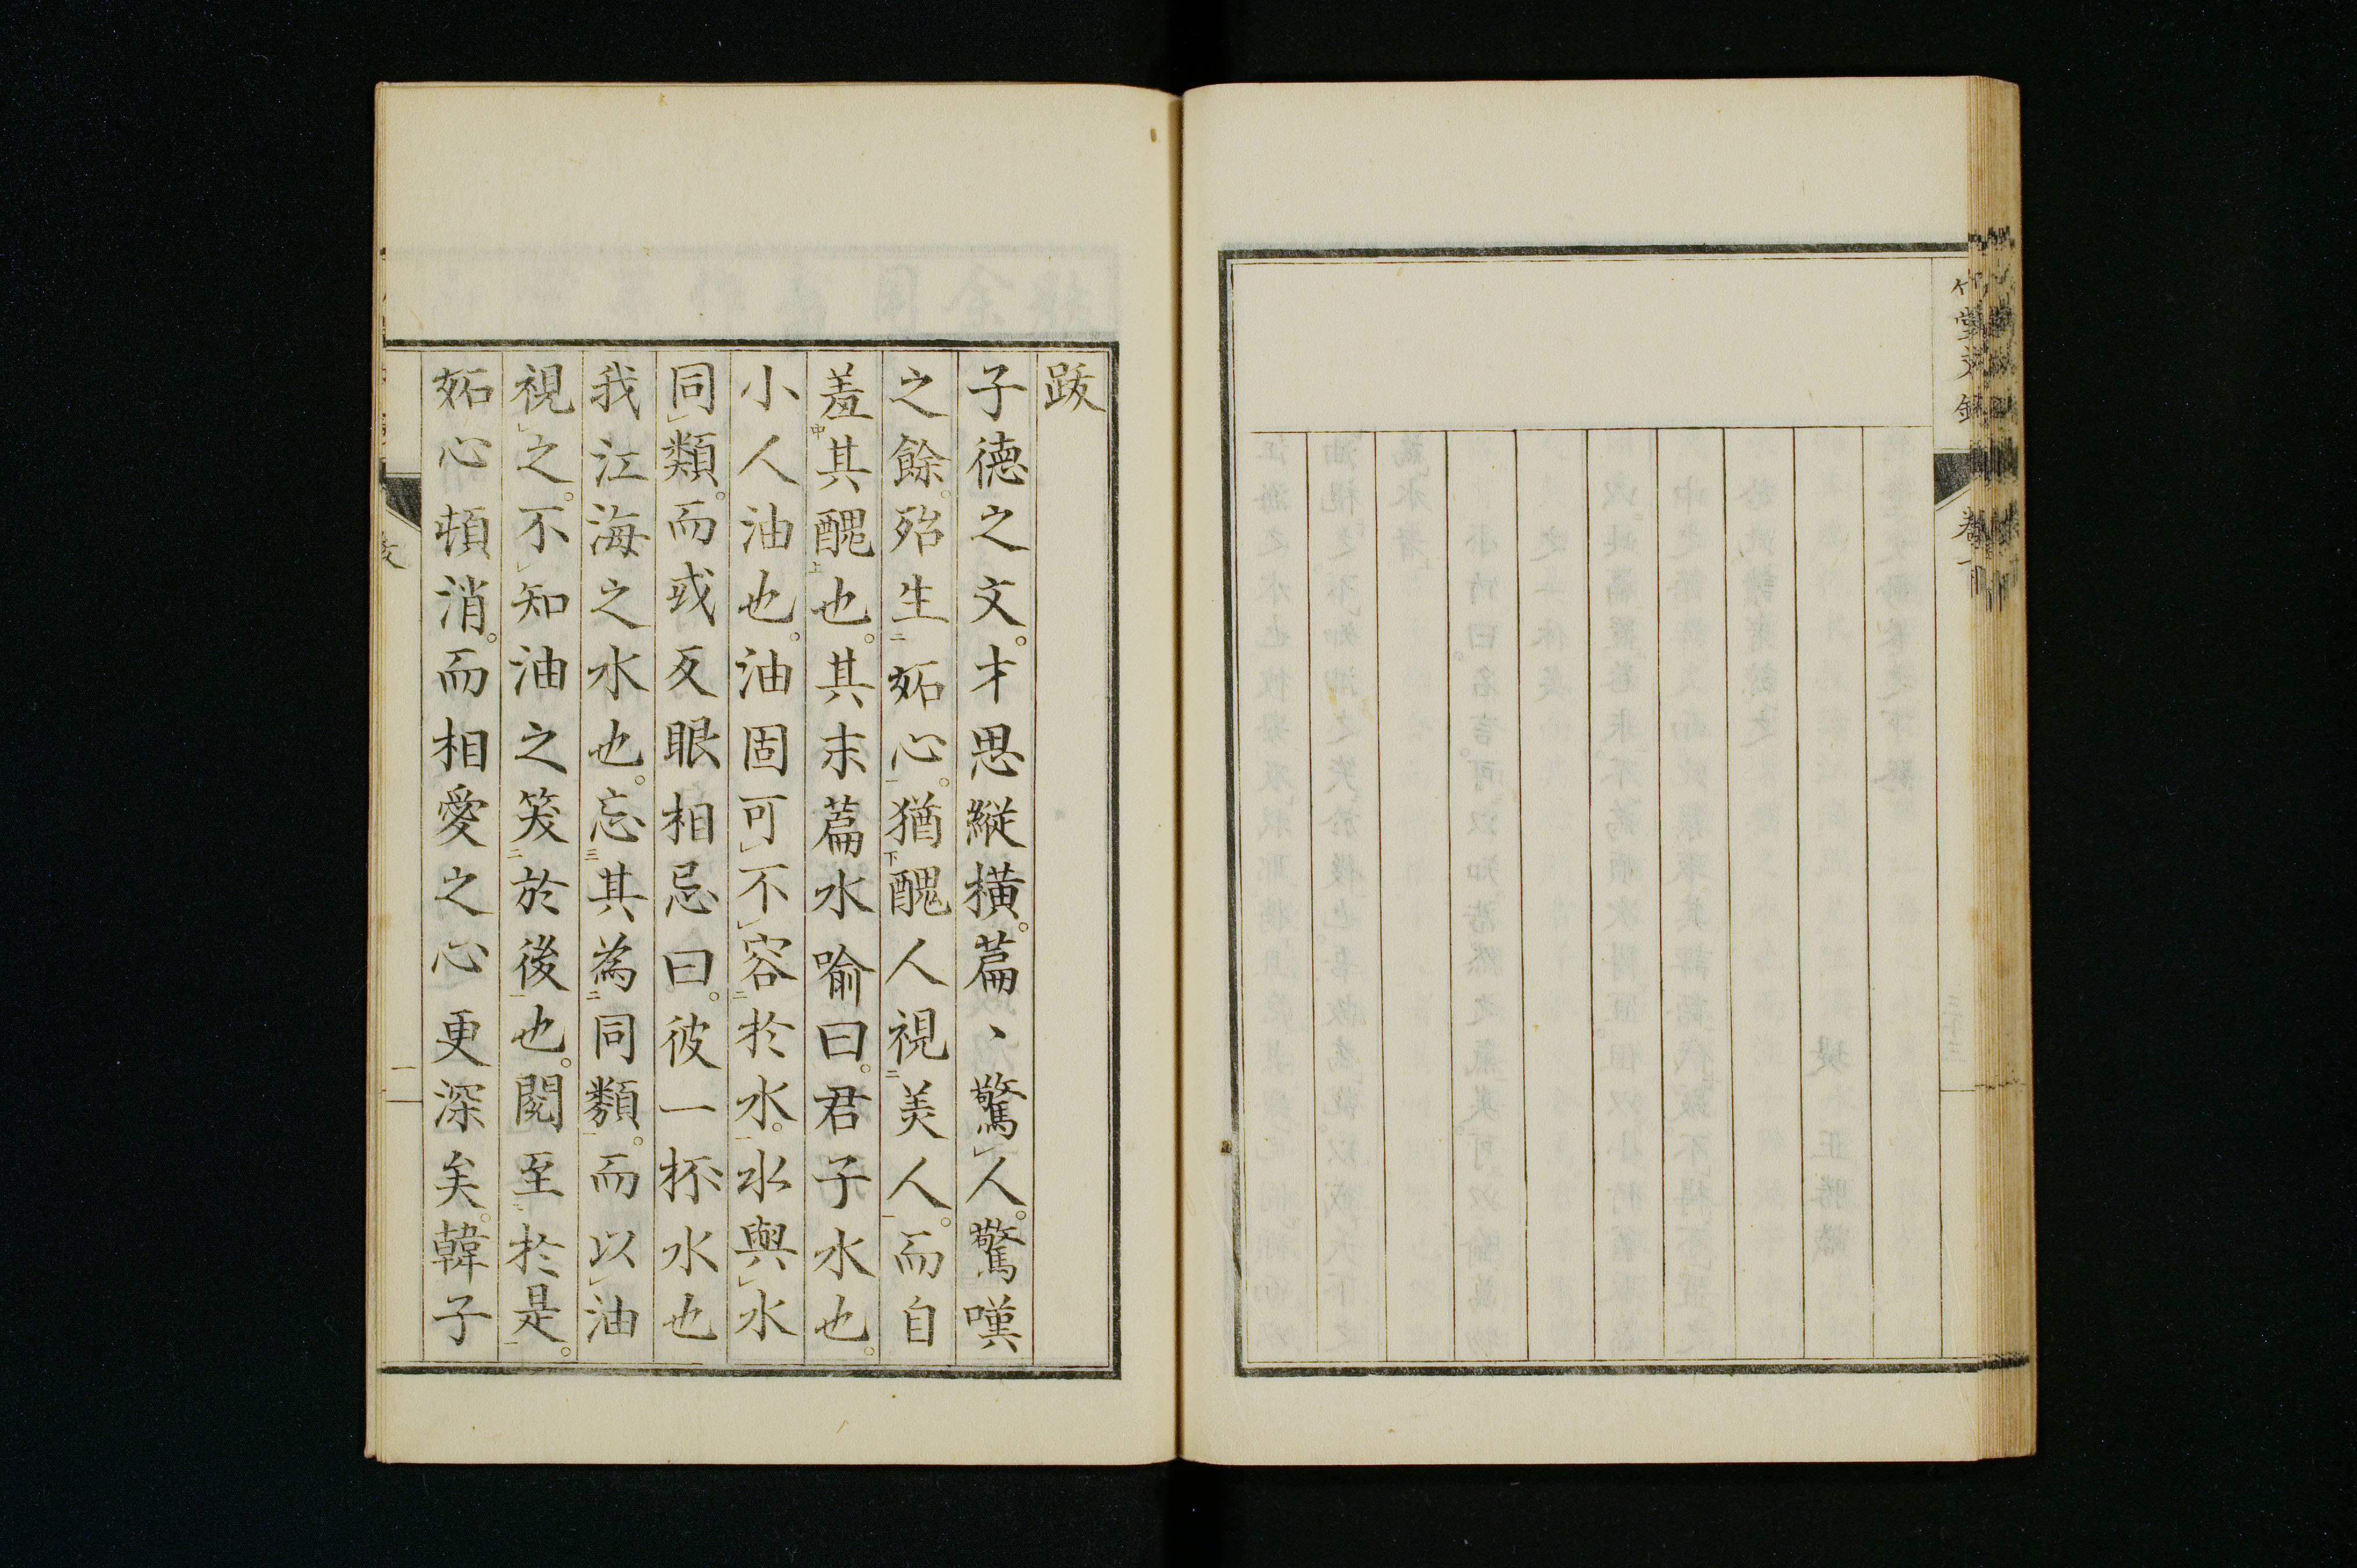 竹堂文鈔
卷下
跋
子德之文。才思縱橫。篇〻驚人。驚嘆
之餘。殆生妬心。猶醜人視美人。而自
羞其醜也。其末篇水喻曰。君子水也。
小人油也。油固可不容於水。水與水
同類。而或反眼相忌曰。彼一杯水也
我江海之水也。忘其為同類。而以油
視之。不知油之笑於後也。閱至於是。
妬心頓消。而相愛之心更深矣。韓子
跋
一